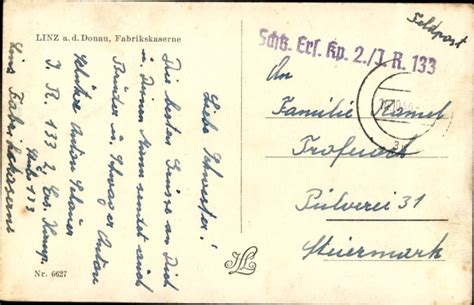 LINZ a. d. Donau, Fabrikskaserne
Feldpost
Schtz. Ers. Kp. 2./J. R. 133
An
Familie
Trofeiach
Pulverei 31
Steiermark
Liebe Schwester!
Die besten Grüsse an Dich
u. Deinen Mann sendet euch
Bruder u. Schwager Anton
Schütze Anton
J. R. 133 2. Ers. Komp.
Linz Fabrikskaserne
Nr. 6627